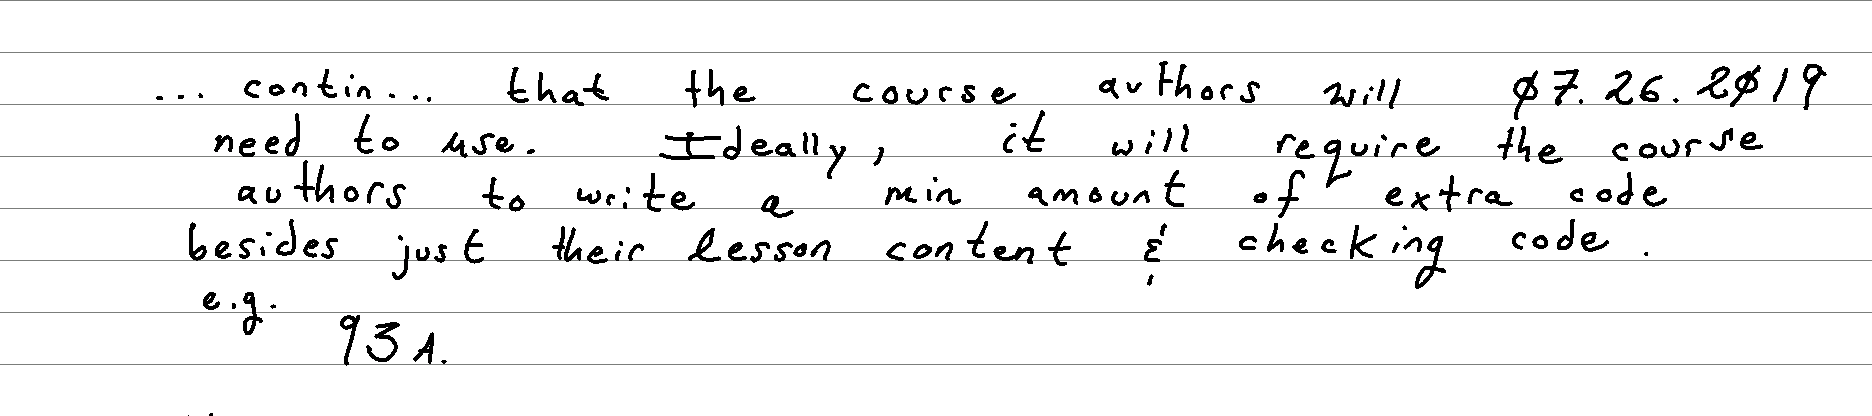 ... contin... that the course authors will 07.26.2019
need to use. Ideally, it will require the course
authors to write a min amount of extra code
besides just their lesson content & checking code.
e.g.
93A.